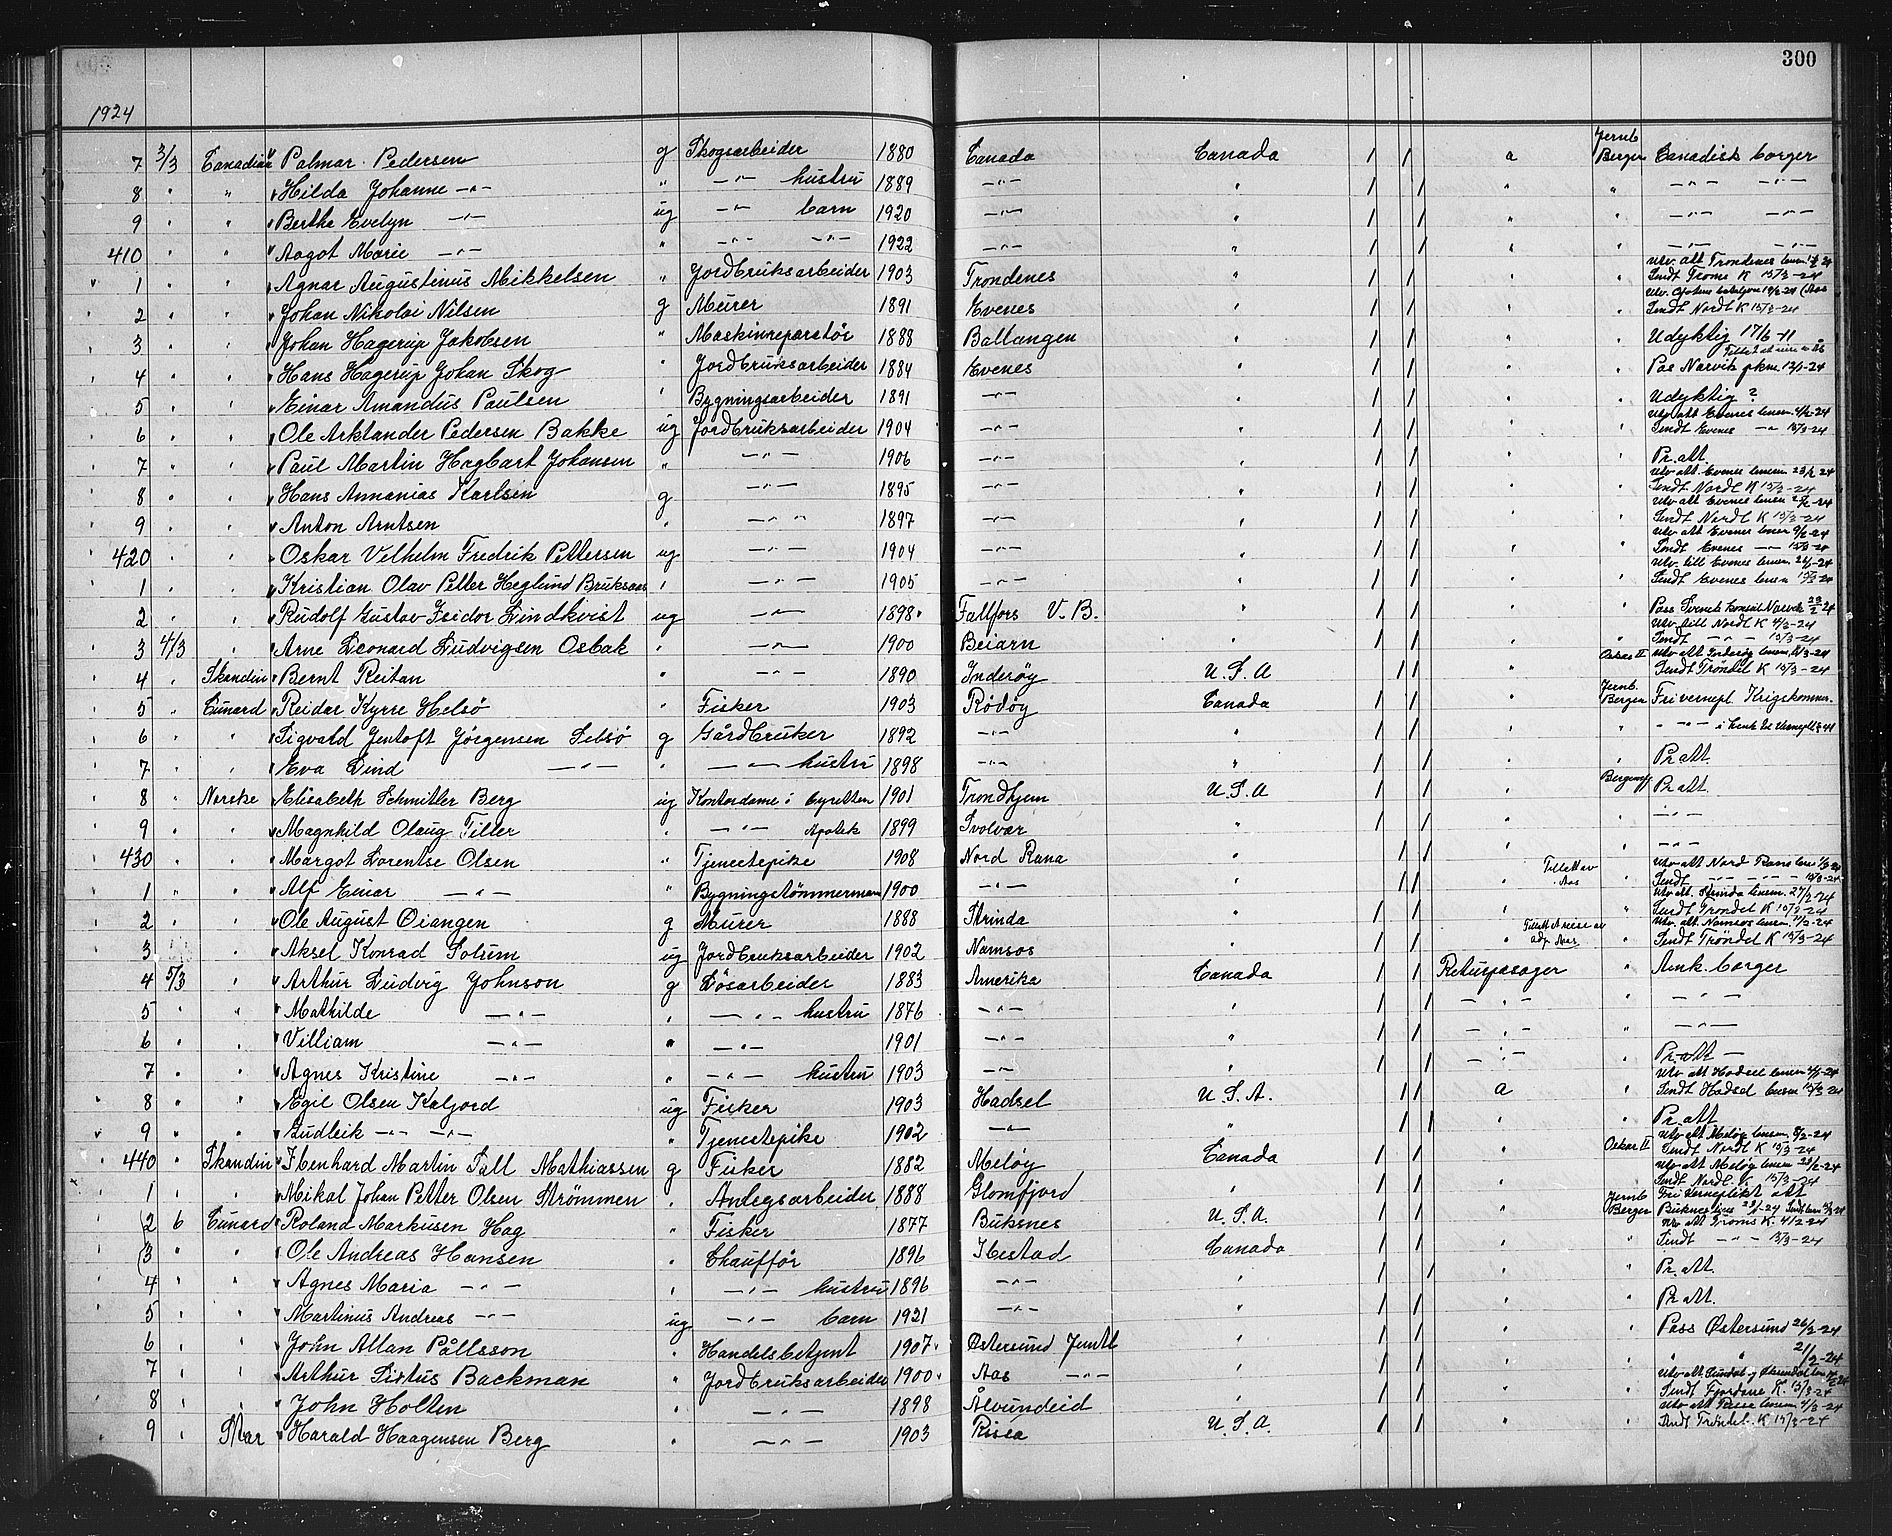 300
1924
7 3/3 Canadian " Palmar Pedersen g Skogsarbeider 1880 Canada Canada / / a Jernb Bergen Canadisk borger
8 " " " Hilda Johanne -"- " -"- hustru 1889 -"- " / / " " -"- -"-
9 " " " Bertha Evelyn -"- ug -"- barn 1920 -"- " / / " " -"- -"-
410 " " " Aagot Marie -"- " -"- -"- 1922 -"- " / / " " -"- -"-
1 " " " Agnar Augustinus Mikkelsen " Jordbruksarbeider 1903 Trondenes " / / " " Utv. att Trondenes lensm Sendt Troms K 15/3-24
2 " " " Johan Nikolai Nilsen g Murer 1891 Evenes " / / " " Sendt Nordl K 15/3-24
3 " " " Johan Hagerup Jakobsen " Maskinreparatør 1888 Ballangen " / / " " Udyktig 17/6-11
4 " " " Hans Hagerup Johan Skog " Jordbruksarbeider 1884 Evenes " / / " " Pas Narvik pkm
5 " " " Einar Amandus Paulsen " Bygningsarbeider 1891 -"- " / / " " Udyktig ?
6 " " " Ole Arktander Pedersen Bakke ug Jordbruksarbeider 1904 -"- " / / " " Utv att Evenes lensm 4/2-24 Sendt Evenes -"- 15/3-24
7 " " " Paul Martin Hagbart Johansen " -"- 1906 -"- " / / " " Pr. att
8 " " " Hans Annanias Karlsen g -"- 1895 -"- " / / " " Utv att. Evenes lensm 23/2 24 Sendt Nordl K 15/3-24
9 " " " Anton Arntsen " -"- 1897 -"- " / / " " Utv att Evenes lensm Sendt Nordl K 15/3-24
420 " " " Oskar Vilhelm Fredrik Pettersen ug -"- 1904 -"- " / / " " Utv att Evenes lensm 9/2-24 Sendt Evenes -"- 15/3-24
1 " " " Kristian Olav Petter Heglund Bruksaas " -"- 1905 -"- " / / " " Utv. till Evenes lensm Sendt Evenes lensm 15/3-24
2 " " " Rudolf Gustav Isidor Lindkvist ug -"- 1898 Fallfors V.B. " / / " " Pass Svensk konsul Narvik 23/2 24
3 4/3 " " Arne Leonard Ludvigsen Osbak " -"- 1900 Beiarn " / / " " Utv till Nordl K 4/2-24 Sendt -"- 15/3-24
4 " Skandin " Bernt Reitan " -"- 1890 Inderøy U.S.A / / " Oskar II Utv att Inderøy lensm Sendt Trøndel K 15/3-24
5 " Cunard " Reidar Kyrre Helsø " Fisker 1903 Rødøy Canada / / " Jernb. Bergen Fri vernepl. Krigskommis.
6 " " " Sigvald Jentoft Jørgensen Selsø g Gårdbruker 1892 -"- " / / " " -"-
7 " " " Eva Lind -"- " -"- hustru 1898 -"- " / / " " Pr att
8 " Norske " Elisabeth Schmitler Berg ug Kontordame i byretten 1901 Trondhjem U.S.A / / Bergensf Pr att.
9 " " " Magnhild Olaug Tiller " -"- Apotek 1899 Svolvær " / / -"-
430 " " " Margot Lorentse Olsen " Tjenestepike 1908 Nord Rana " / / -"-
1 " " " Alf Einar -"- " Bygningstømmermann 1900 -"- " / / Tillatt av Aas Utv att Nord Rana lensm Sendt -"- 15/3-24
2 " " " Ole August Øiangen g Murer 1888 Strinda " / / " " Utv att. Strinda lensm. 27/2-24 Sendt Trøndel K 15/3-24
3 " " " Aksel Konrad Solum ug Jordbruksarbeider 1902 Namsos " / / " " Utv. att Namsos lensm Sendt Trøndel K 15/3-24
4 5/3 " " Arthur Ludvig Johnson g Løsarbeider 1883 Amerika Canada / / Returpasager " Amk. borger
5 " " " Mathilde -"- " -"- hustru 1876 -"- " / / -"- " -"-
6 " " " Villiam -"- " -"- 1901 -"- " / / -"- " -"-
7 " " " Agnes Kristine -"- " -"- hustru 1903 -"- " / / -"- " Pr. att -
8 " " " Egil Olsen Kaljord ug Fisker 1903 Hadsel U.S.A. / / a " Utv att Hadsel lensm Sendt Hadsel lensm 15/3 24
9 " " " Gudleik -"- -"- " Tjenestepike 1902 -"- " / / " " Pr. att.
440 " Skandin " Ibenhard Martin Sall Mathiassen g Fisker 1882 Meløy Canada / / " Oskar II Utv att Meløy lensm 8/2-24 Sendt Nordl K 15/3-24
1 " " " Mikal Johan Petter Olsen Strømmen " Anlegsarbeider 1888 Glomfjord " / / " " Utv att Meløy lensm Sendt Nordl. K 15/3-24
2 6 Cunard " Roland Markusen Hag " Fisker 1877 Buksnes U.S.A. / / " Jernb Bergen Fri Verneplikt att
3 " " " Ole Andreas Hansen " Chauffør 1896 Ibestad Canada / / " " Utv att Troms K. 4/2-24 Sendt -"- 15/3-24
4 " " " Agnes Maria -"- " -"- hustru 1896 -"- " / / " " Pr. att.
5 " " " Martinus Andreas -"- ug -"- barn 1921 -"- " / / " " Pr att.
6 " " " John Allan Pållsson " Handelsbetjent 1907 Østersund Jemtl " / / " " Pass Østersund 26/2-24
7 " " " Arthur Sixtus Backman " Jordbruksarbeider 1900 Aas -"- " / / " " " " 21/2-24
8 " " " John Holten " -"- 1898 Ålvundeid " / / " " Sendt Fjordane K. 15/3-24
9 " St Mar " Harald Haagensen Berg " -"- 1903 Rissa U.S.A. / / " " Utv att Rissa lensm Sendt Trøndel. K 15/3-24